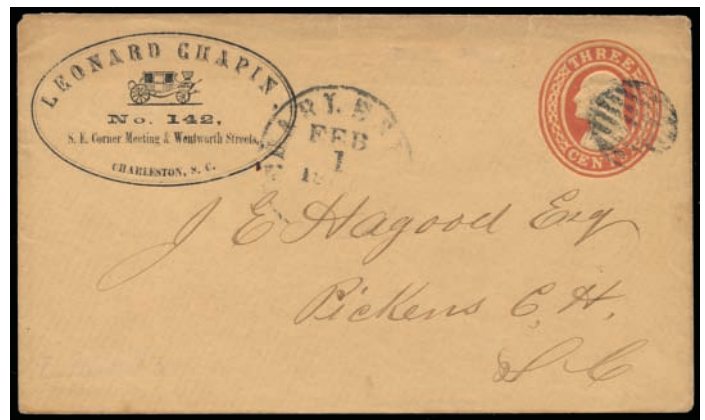 LEONARD CHAPIN.
No. 142,
S. E. Corner Meeting & Wentworth Streets,
CHARLESTON, S. C.
FEB
1
THREE
CENTS
J E Hagood Esq
Pickens C. H.
S. C